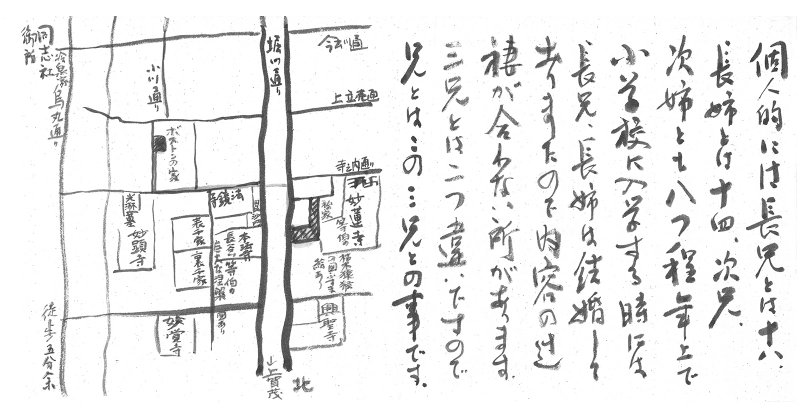 個人的には長兄とは十八、
長姉とは十四、次兄、
次姉とも八つ程年上で
小学校に入学する時には
長兄、長姉は結婚して
ありましたので内容の辻
褄が合わない所があります。
三兄とは二つ違いですので
兄とは、この三兄との事です。
今出川通
上立売通
寺之内通り
堀川通り
小川通り
烏丸通り
同志社
御所
ボストンの家
妙蓮寺
光琳墓
妙顕寺
表千家
裏千家
本法寺
長谷川等伯の
興聖寺
妙覚寺
上賀茂
北
徒歩五分余